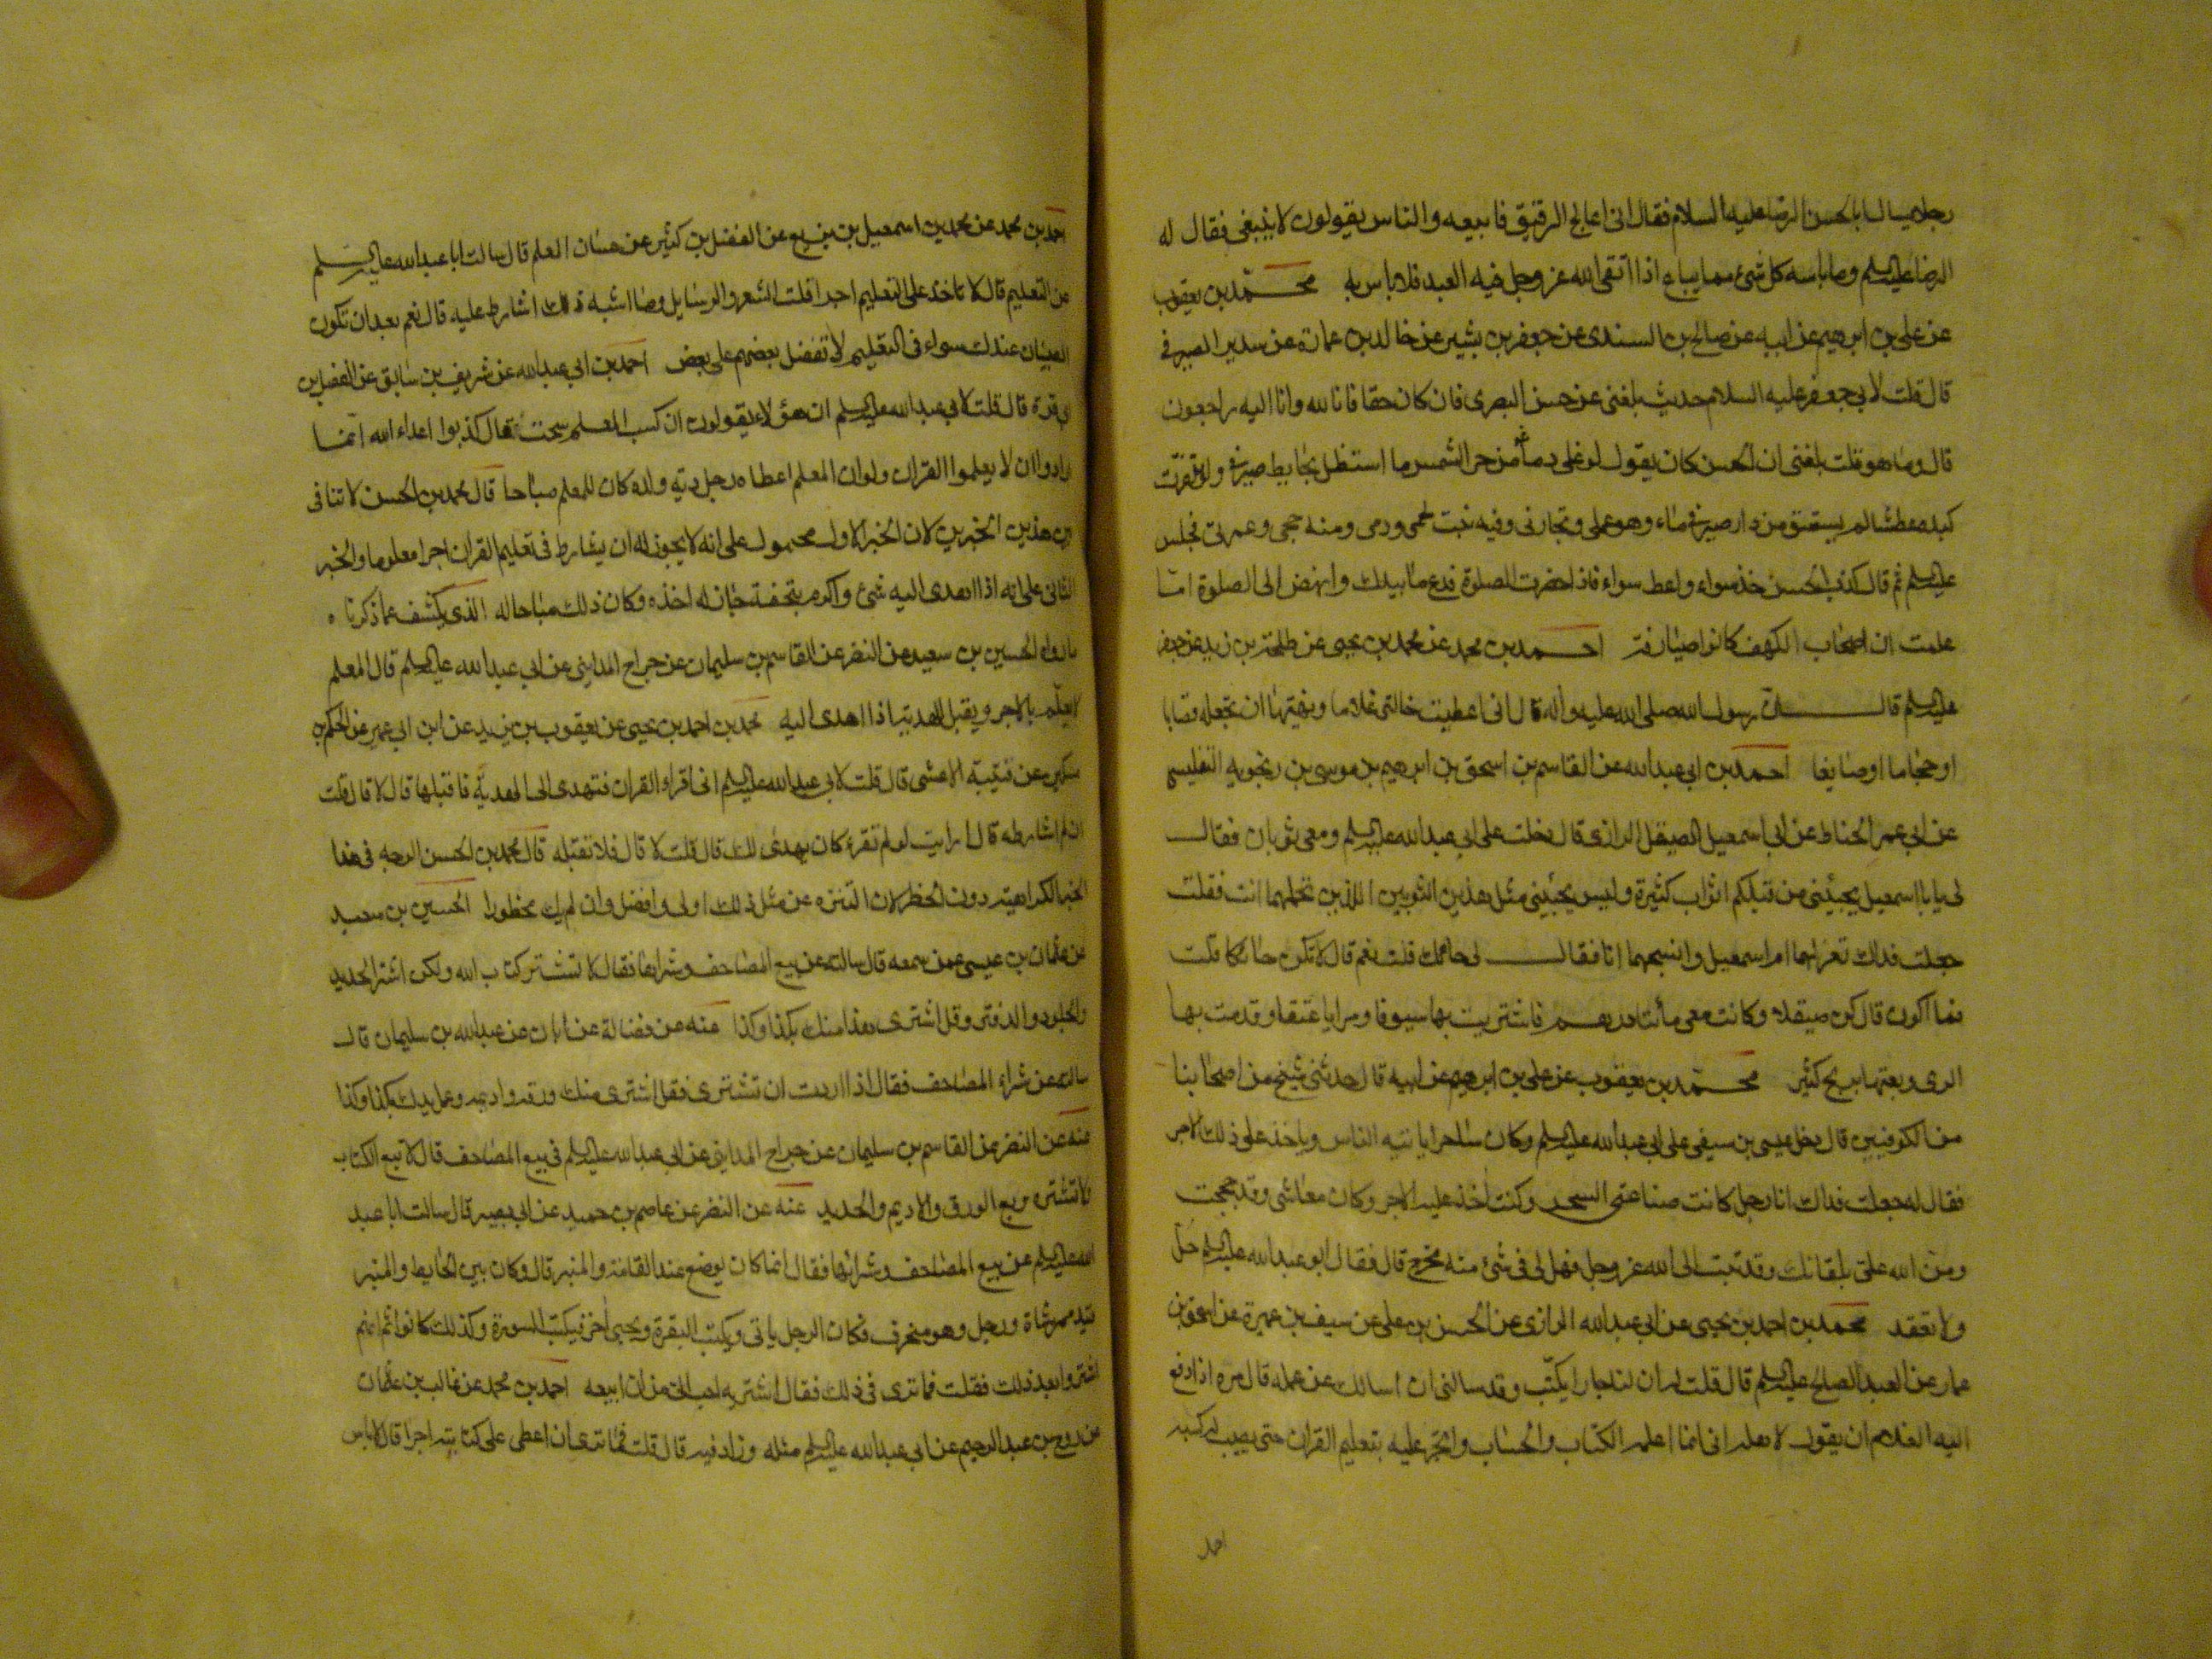 رجلا يسال ابا الحسن الرضا عليه السلام فقال اني اعالج الرقيق فابيعه والناس يقولون لا ينبغي فقال له
الرضا عليه السلم وما باسه كل شئ مما يباع اذا اتقى الله عز وجل فيه العبد فلا باس به محمد بن يعقوب
عن علي بن ابرهيم عن ابيه عن صالح بن السندي عن جعفر بن بشير عن خالد بن عمارة عن سدير الصيرفي
قال قلت لابي جعفر عليه السلام حديث بلغني عن حسن البصري فان كان حقا فانا لله وانا اليه راجعون
قال وما هو قلت بلغني ان الحسن كان يقول لو غلى دماغه من حر الشمس ما استظل بحايط صيرفي ولو تفرثت
كبده عطشا لم يستسق من دار صيرفي ماء وهو عملي وتجارتي وفيه نبت لحمي ودمي ومنه حجي وعمرتي فجلس
عليه السلم ثم قال كذب الحسن خذ سواء واعط سواء فاذا حضرت الصلوة فدع ما بيدك وانهض الى الصلوة اما
علمت ان اصحاب الكهف كانوا صيارفة احمد بن محمد عن محمد بن يحيى عن طلحة بن زيد عن جعفر
عليه السلم قال ان رسول الله صلى الله عليه واله قال اني اعطيت خالتي غلاما ونهيتها ان تجعله قصابا
او حجاما او صايغا احمد بن ابي عبدالله عن القاسم بن اسحق بن ابرهيم بن موسى بن زنجويه التفليسي
عن ابي عمر الحناط عن ابي اسمعيل الصيقل الرازي قال دخلت على ابي عبدالله عليه السلم ومعي ثوبان فقال
لي يا با اسمعيل يجيئني من قبلكم اثواب كثيرة وليس يجيئني مثل هذين الثوبين اللذين تحملهما انت فقلت
جعلت فداك تغزلهما ام اسمعيل وانسجهما انا فقال لي حائك قلت نعم قال لا تكن حائكا قلت
فما اكون قال كن صيقلا وكانت معي مأتا درهم فاشتريت بها سيوفا ومرايا عتقا وقدمت بها
الري وبعتها بربح كثير محمد بن يعقوب عن علي بن ابرهيم عن ابيه قال حدثني شيخ من اصحابنا
من الكوفيين قال دخل عيسى بن سيفي على ابي عبدالله عليه السلم وكان ساحرا ياتيه الناس وياخذ على ذلك الاجر
فقال له جعلت فداك انا رجل كانت صناعتي السحر وكنت اخذ عليه الاجر وكان معاشي وقد حججت
ومن الله علي بلقائك وقد تبت الى الله عز وجل فهل لي في شئ منه مخرج قال فقال ابو عبدالله عليه السلم حل
ولا تعقد محمد بن احمد بن يحيى عن ابي عبدالله الرازي عن الحسن بن علي عن سيف بن عميرة عن اسحق بن
عمار عن العبد الصالح عليه السلم قال قلت له ان لنا جارا يكتب وقد سالني ان اسالك عن عمله قال مره اذا دفع
اليه الغلام ان يقول لاهله اني انما اعلمه الكتاب والحساب واتجر عليه بتعليم القران حتى يطيب له كسبه
احمد
احمد بن محمد عن محمد بن اسمعيل بن بزيع عن الفضل بن كثير عن حسان المعلم قال سالت ابا عبدالله عليه السلم
عن التعليم قال لا تاخذ على التعليم اجرا قلت الشعر والرسايل وما اشبه ذلك اشارط عليه قال نعم بعد ان تكون
الصبيان عندك سواء في التعليم لا تفضل بعضهم على بعض احمد بن ابي عبدالله عن شريف بن سابق عن الفضل بن
ابي قرة قال قلت لابي عبدالله عليه السلم ان هؤلاء يقولون ان كسب المعلم سحت فقال كذبوا اعداء الله انما
ارادوا ان لا يعلموا القران ولو ان المعلم اعطاه رجل دية ولده كان للمعلم مباحا قال محمد بن الحسن لا تنافي
بين هذين الخبرين لان الخبر الاول محمول على انه لا يجوز له ان يشارط في تعليم القران اجرا معلوما والخبر
الثاني على انه اذا اهدى اليه شئ واكرم بتحفة جاز له اخذه وكان ذلك مباحا له الذي يكشف عما ذكرناه
ما رواه الحسين بن سعيد عن النضر عن القاسم بن سليمان عن جراح المدايني عن ابي عبدالله عليه السلم قال المعلم
لا يعلم بالاجر ويقبل الهدية اذا اهدى اليه محمد بن احمد بن يحيى عن يعقوب بن يزيد عن ابن ابي عمير عن الحكم بن
مسكين عن قتيبة الاعشى قال قلت لابي عبدالله عليه السلم اني اقراء القران فتهدى الي الهدية فاقبلها قال لا قال قلت
ان لم اشارطه قال ارايت لو لم تقرءه كان يهدى لك قال قلت لا قال فلا تقبله قال محمد بن الحسن الوجه في هذا
الخبر الكراهية دون الحظر لان التنزه عن مثل ذلك اولى وافضل وان لم يك محظورا الحسين بن سعيد
عن عثمان بن عيسى عمن سمعه قال سالته عن بيع المصاحف وشرائها فقال لا تشتر كتاب الله ولكن اشتر الحديد
والجلود والدفتر وقل اشتري هذا منك بكذا وكذا عنه عن فضالة عن ابان عن عبدالله بن سليمان قال
سالته عن شراء المصاحف فقال اذا اردت ان تشتري فقل اشتري منك ورقه واديمه وعمل يدك بكذا وكذا
عنه عن النضر عن القاسم بن سليمان عن جراح المدايني عن ابي عبدالله عليه السلم في بيع المصاحف قال لا تبع الكتاب
ولا تشتره وبع الورق والاديم والحديد عنه عن النضر عن عاصم بن حميد عن ابي بصير قال سالت ابا عبد
الله عليه السلم عن بيع المصاحف وشرائها فقال انما كان يوضع عند القامة والمنبر قال وكان بين الحايط والمنبر
قيد ممر شاة ورجل وهو منحرف فكان الرجل ياتي ويكتب البقرة ويجيى اخر فيكتب السورة وكذلك كانوا ثم انهم
اشتروا بعد ذلك فقلت فما ترى في ذلك فقال اشتريه احب الي من ان ابيعه احمد بن محمد عن غالب بن عثمان
عن روح بن عبدالرحيم عن ابي عبدالله عليه السلم مثله وزاد فيه قال قلت فما ترى ان اعطي على كتابته اجرا قال لا باس